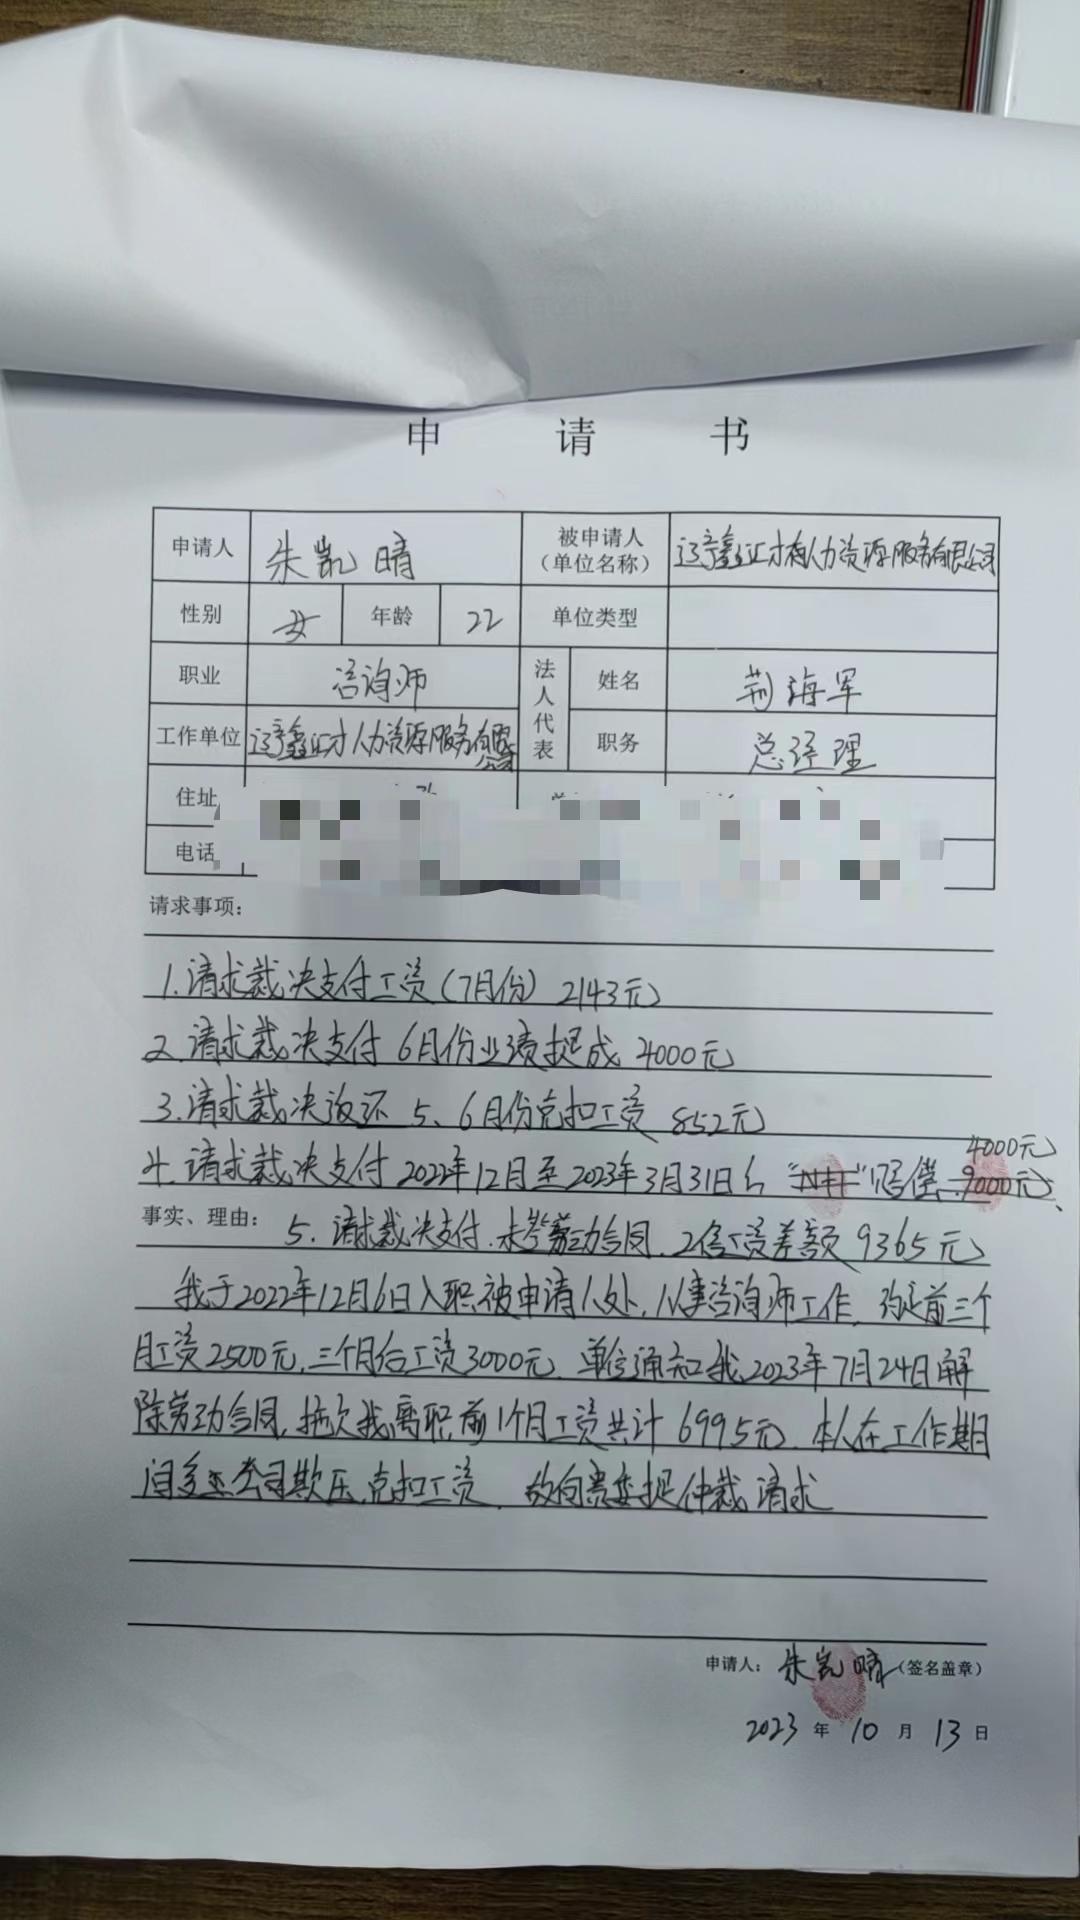 申请书
申请人 朱凯晴 被申请人（单位名称） 辽宁鑫正才有人力资源服务有限公司
性别 女 年龄 22 单位类型
职业 咨询师 法人代表 姓名 荆海军
工作单位 辽宁鑫正才人力资源服务有限公司 职务 总经理
住址
电话
请求事项：
1.请求裁决支付工资（7月份）2143元
2.请求裁决支付 6月份业绩提成 4000元
3.请求裁决返还 5、6月份克扣工资 852元
4000元
4.请求裁决支付 2022年12月至2023年3月31日 " "赔偿 9000元
事实、理由： 5.请求裁决支付.未签劳动合同.2倍工资差额 9365元
我于2022年12月6日入职被申请人处，从事咨询师工作，约定前三个
月工资2500元，三个月后工资3000元，单位通知我2023年7月24日解
除劳动合同，拖欠我离职前1个月工资共计 6995元，本人在工作期
间多 公司欺压，克扣工资，故向贵委提仲裁请求
申请人：朱凯晴（签名盖章）
2023 年 10 月 13 日